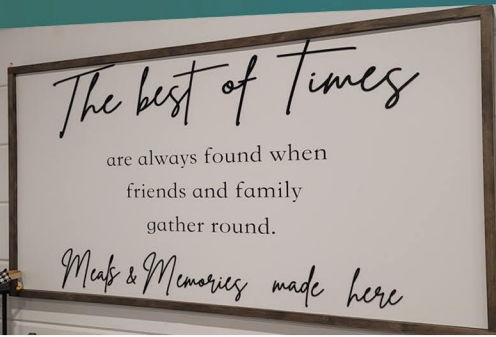 The best of Times
are always found when
friends and family
gather round.
Meals & Memories made here